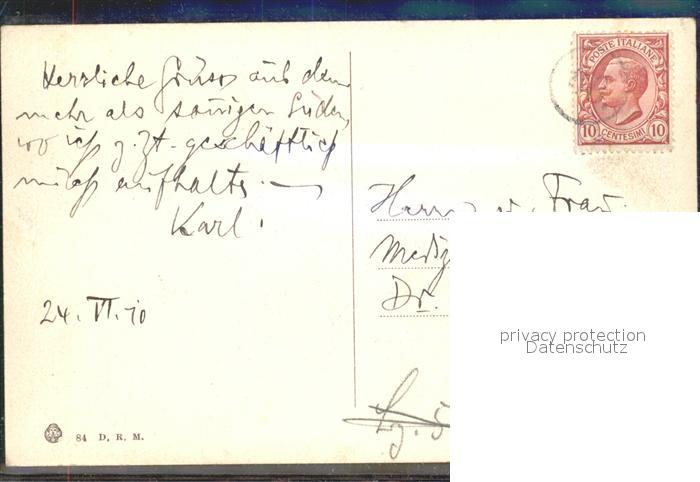 Herzliche Grüsse aus dem
mehr als sonnigen Süden,
wo ich z. Zt. geschäftlich
mich aufhalte. —
Karl.
24. VI. 10
84 D. R. M.
POSTE ITALIANE
10 CENTESIMI 10
Herrn u. Frau
Mediz
Dr.
privacy protection
Datenschutz